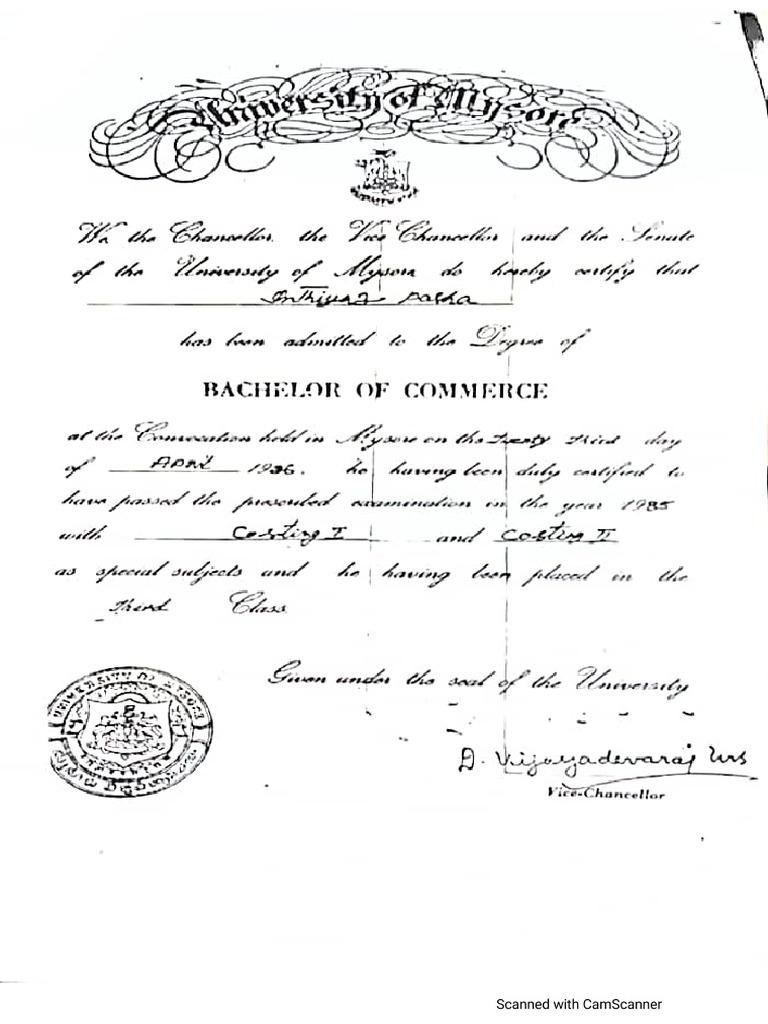 University of Mysore
We the Chancellor, the Vice Chancellor and the Senate
of the University of Mysore do hereby certify that
Pasha
has been admitted to the Degree of
BACHELOR OF COMMERCE
at the Convocation held in Mysore on the Twenty Third day
of April 1986. he having been duly certified to
have passed the prescribed examination in the year 1985
with Costing I and Costing II
as special subjects and he having been placed in the
Third Class
Given under the seal of the University
UNIVERSITY OF MYSORE
D. Vijayadevaraj Urs
Vice-Chancellor
Scanned with CamScanner